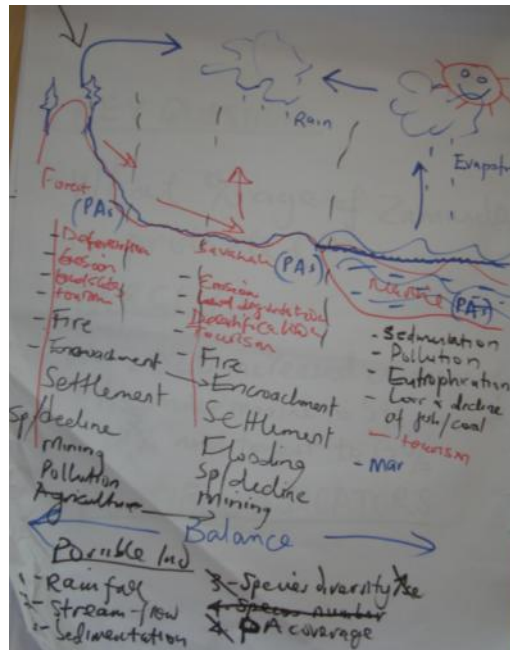 Rain
Evapotr
Forest
(PAs)
- Deforestation
- Erosion
- landslides
- tourism
- Fire
- Encroachment
Settlement
Sp/decline
Mining
Pollution
Agriculture
Savannah (PAs)
- Erosion
- Land degradation
- Desertification
- Tourism
- Fire
Encroachment
Settlement
Flooding
Sp/decline
Mining
Marine (PAs)
- Sedimentation
- Pollution
- Eutrophication
- Loss & decline
of fish/coral
- tourism
- Mar
Balance
Possible Ind
1 - Rainfall
2 - Stream-flow
- Sedimentation
3 - Species diversity
4 - Species number
4 PA coverage